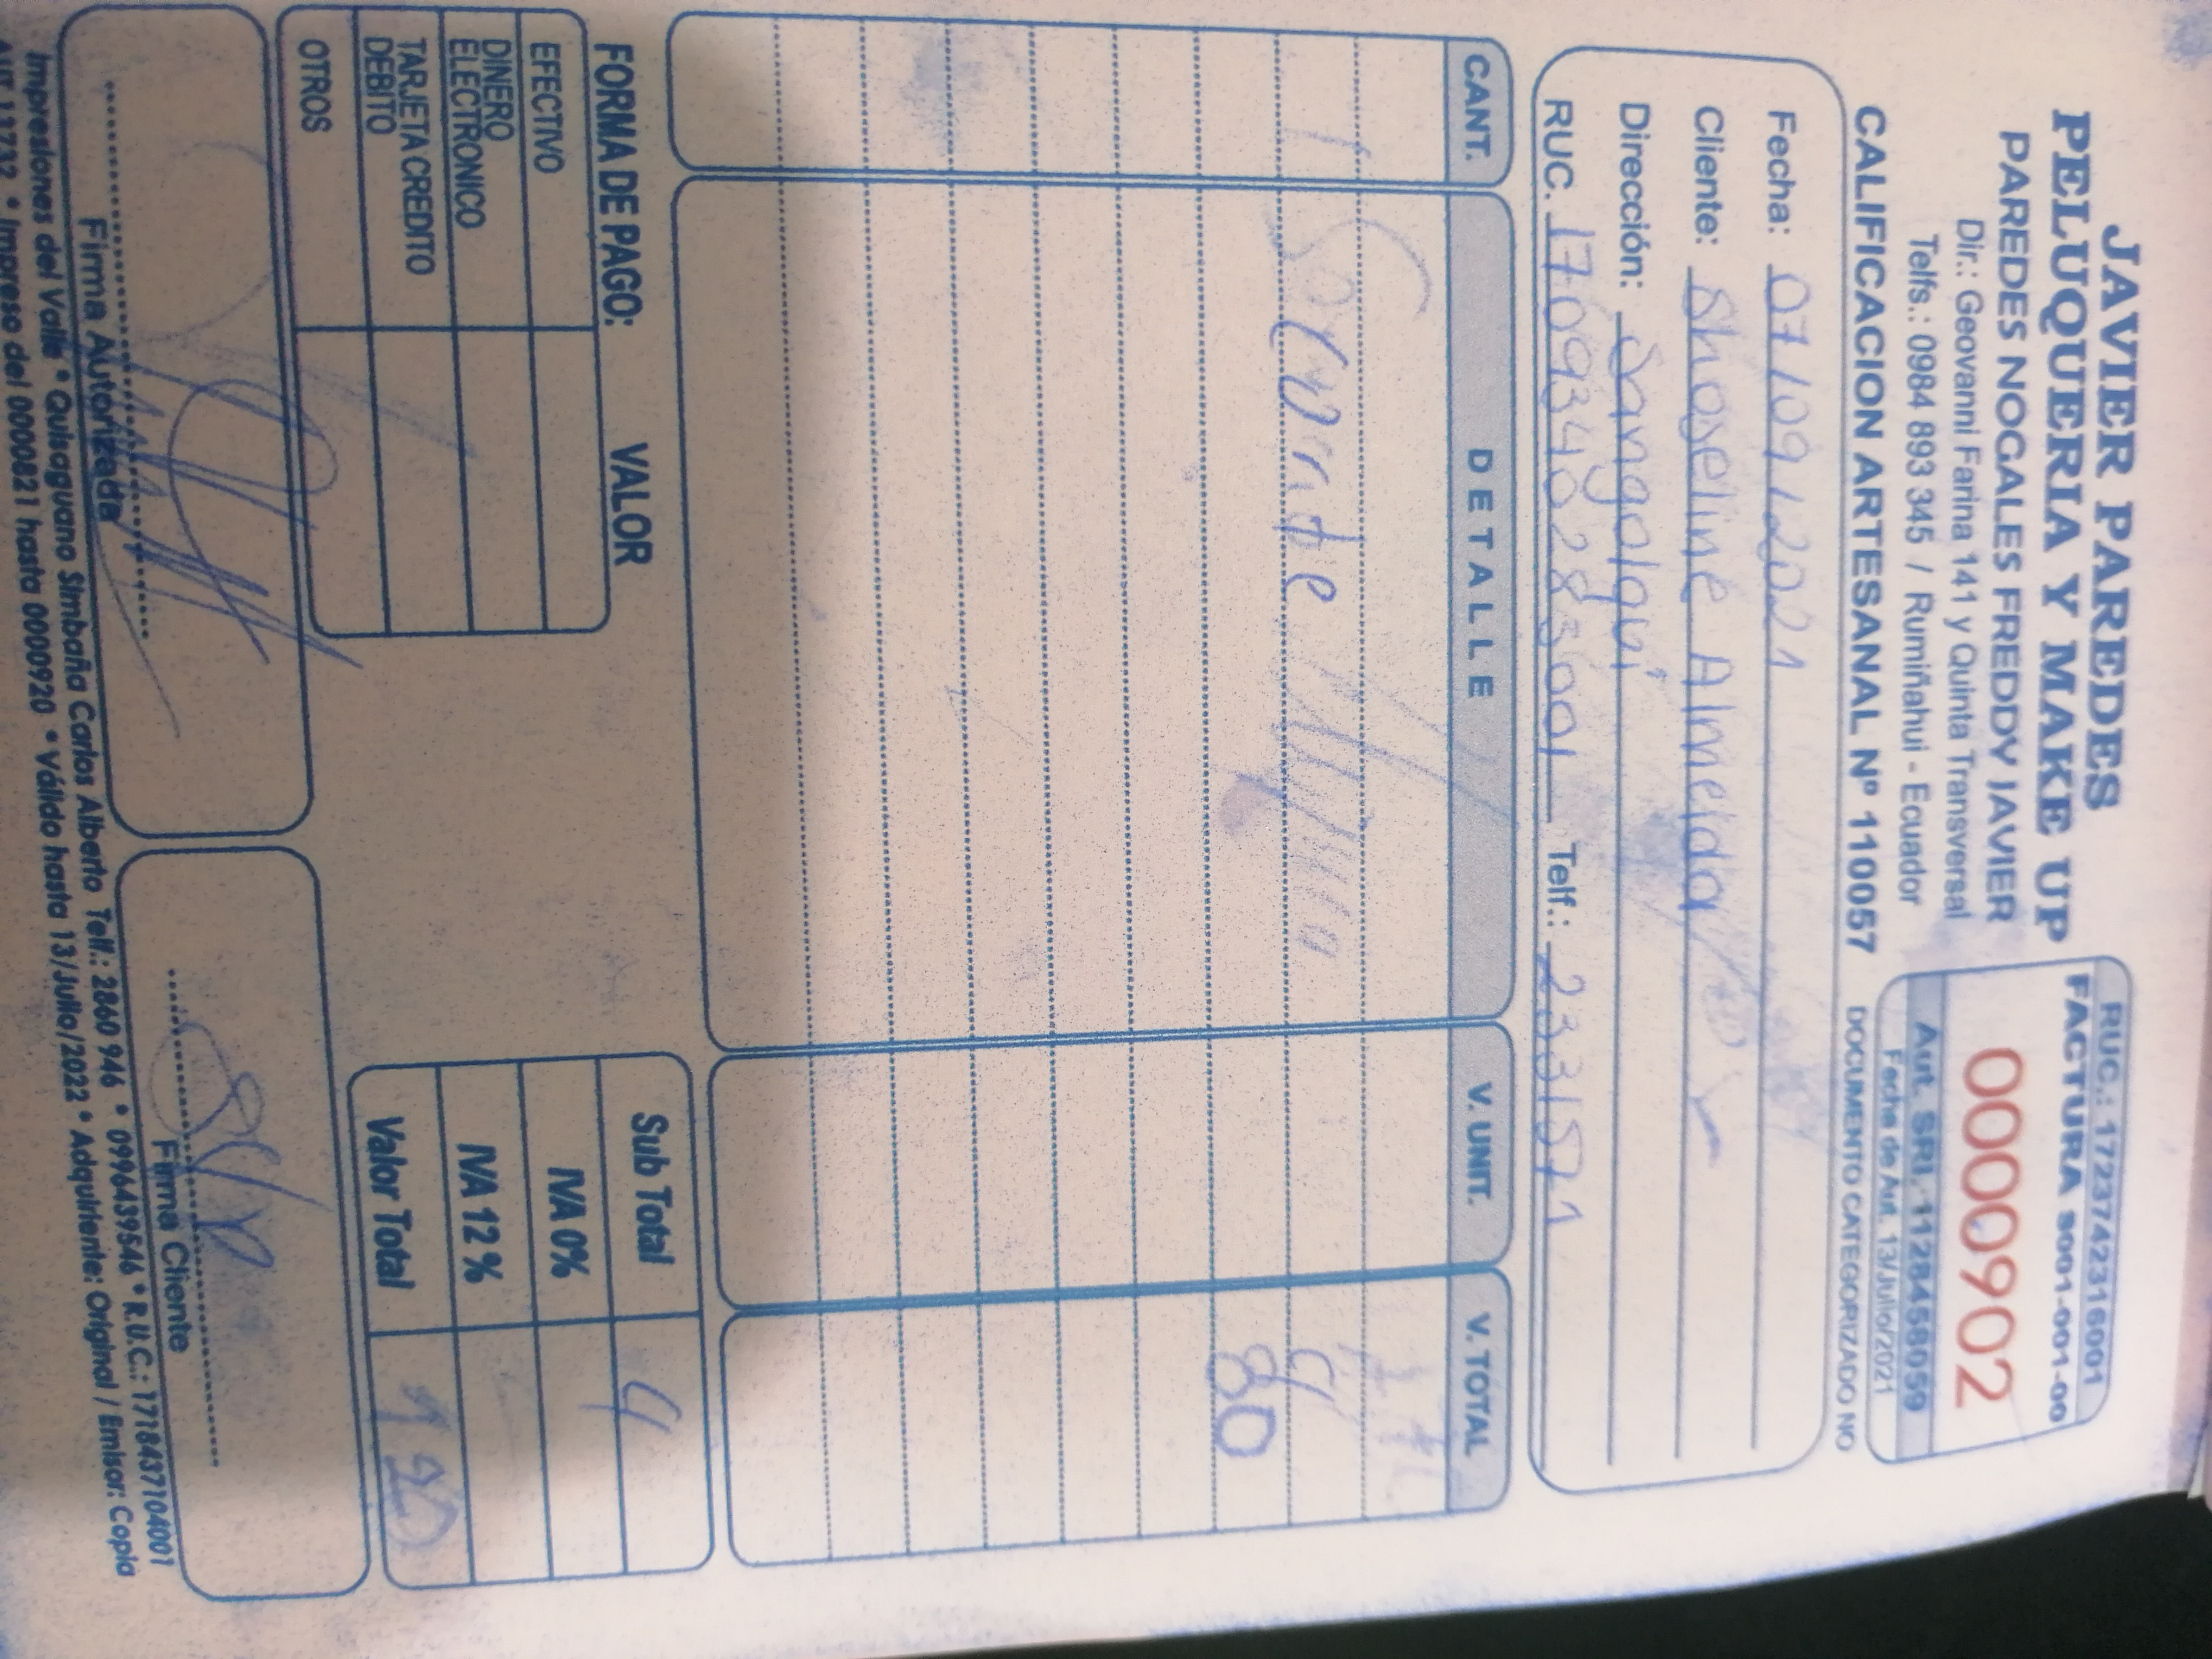 JAVIER PAREDES
PELUQUERIA Y MAKE UP
PAREDES NOGALES FREDDY JAVIER
Dir.: Geovanni Farina 141 y Quinta Transversal
Telfs.: 0984 893 345 / Rumiñahui - Ecuador
CALIFICACION ARTESANAL Nº 110057
RUC.: 1723742316001
FACTURA S001-001-00
0000902
Aut. SRI. 1128458059
Fecha de Aut. 13/Julio/2021
DOCUMENTO CATEGORIZADO NO
Fecha: 07/09/2021
Cliente: Shoseline Almeida
Dirección: Sangolqui
RUC. 1709340283001 Telf.: 2331571
CANT. DETALLE V. UNIT. V. TOTAL
1
80
FORMA DE PAGO: VALOR
EFECTIVO
DINERO ELECTRONICO
TARJETA CREDITO DEBITO
OTROS
Sub Total
IVA 0%
IVA 12 %
Valor Total
Firma Autorizada
Firma Cliente
Impresiones del Valle * Quisaguano Simbaña Carlos Alberto Telf.: 2860 946 * 0996439546 * R.U.C.: 1718437104001
AUT. 13732 * Impreso del 0000821 hasta 0000920 * Válido hasta 13/Julio/2022 * Adquiriente: Original / Emisor: Copia